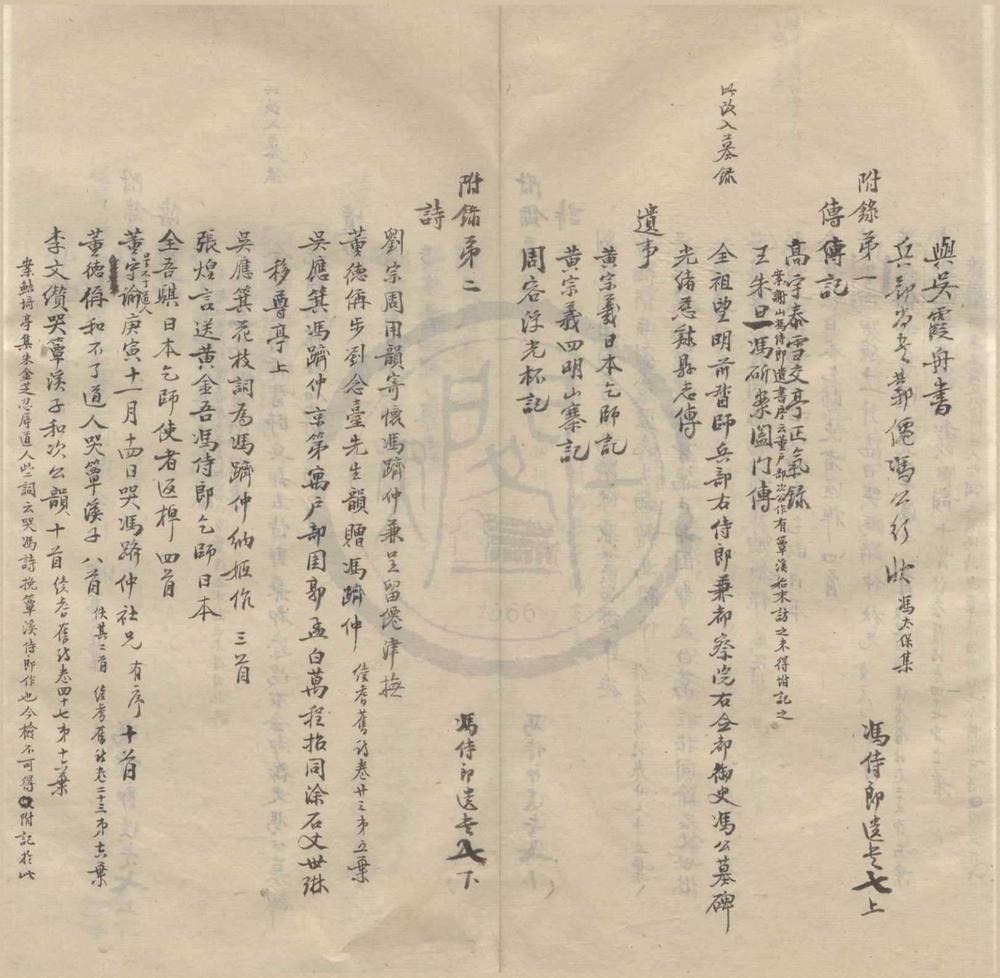 與吳霞舟書
兵部尚書鄴僊馮公行狀 馮太保集
附錄第一 馮侍郎遺書七上
傳 傳記
高宇泰雪交亭正氣錄
案謝山馮侍郎遺書序云董戶部次公作有簟溪始末訪之未得坿記之
王朱旦馮研案闔門傳
全祖望明前督師兵部右侍郎兼都察院右僉都御史馮公墓碑
以改入墓錄
光緒慈谿縣志傳
遺事
黃宗羲日本乞師記
黃宗羲四明山寨記
周容浮光杯記
附錄第二 馮侍郎遺書八下
詩
劉宗周用韻寄懷馮躋仲兼呈留僊津撫
董德偁步劉念臺先生韻贈馮躋仲 續耆舊詩卷廿三第五葉
吳應箕馮躋仲京第寓戶部園郭孟白萬程招同涂石丈世琳
移尊亭上
吳應箕花枝詞為馮躋仲納姬作 三首
張煌言送黃金吾馮侍郎乞師日本
全吾騏日本乞師使者返棹四首
董守諭庚寅十一月十四日哭馮躋仲社兄 有序 十首
董德偁和不了道人哭簟溪子八首 佚其二首 續耆舊詩卷二十三第六葉
李文纘哭簟溪子和次公韻十首 續耆舊詩卷四十七第十六葉
案鮚埼亭集朱金芝忍辱道人些詞云哭馮詩挽簟溪侍郎作也今檢不可得附記於此